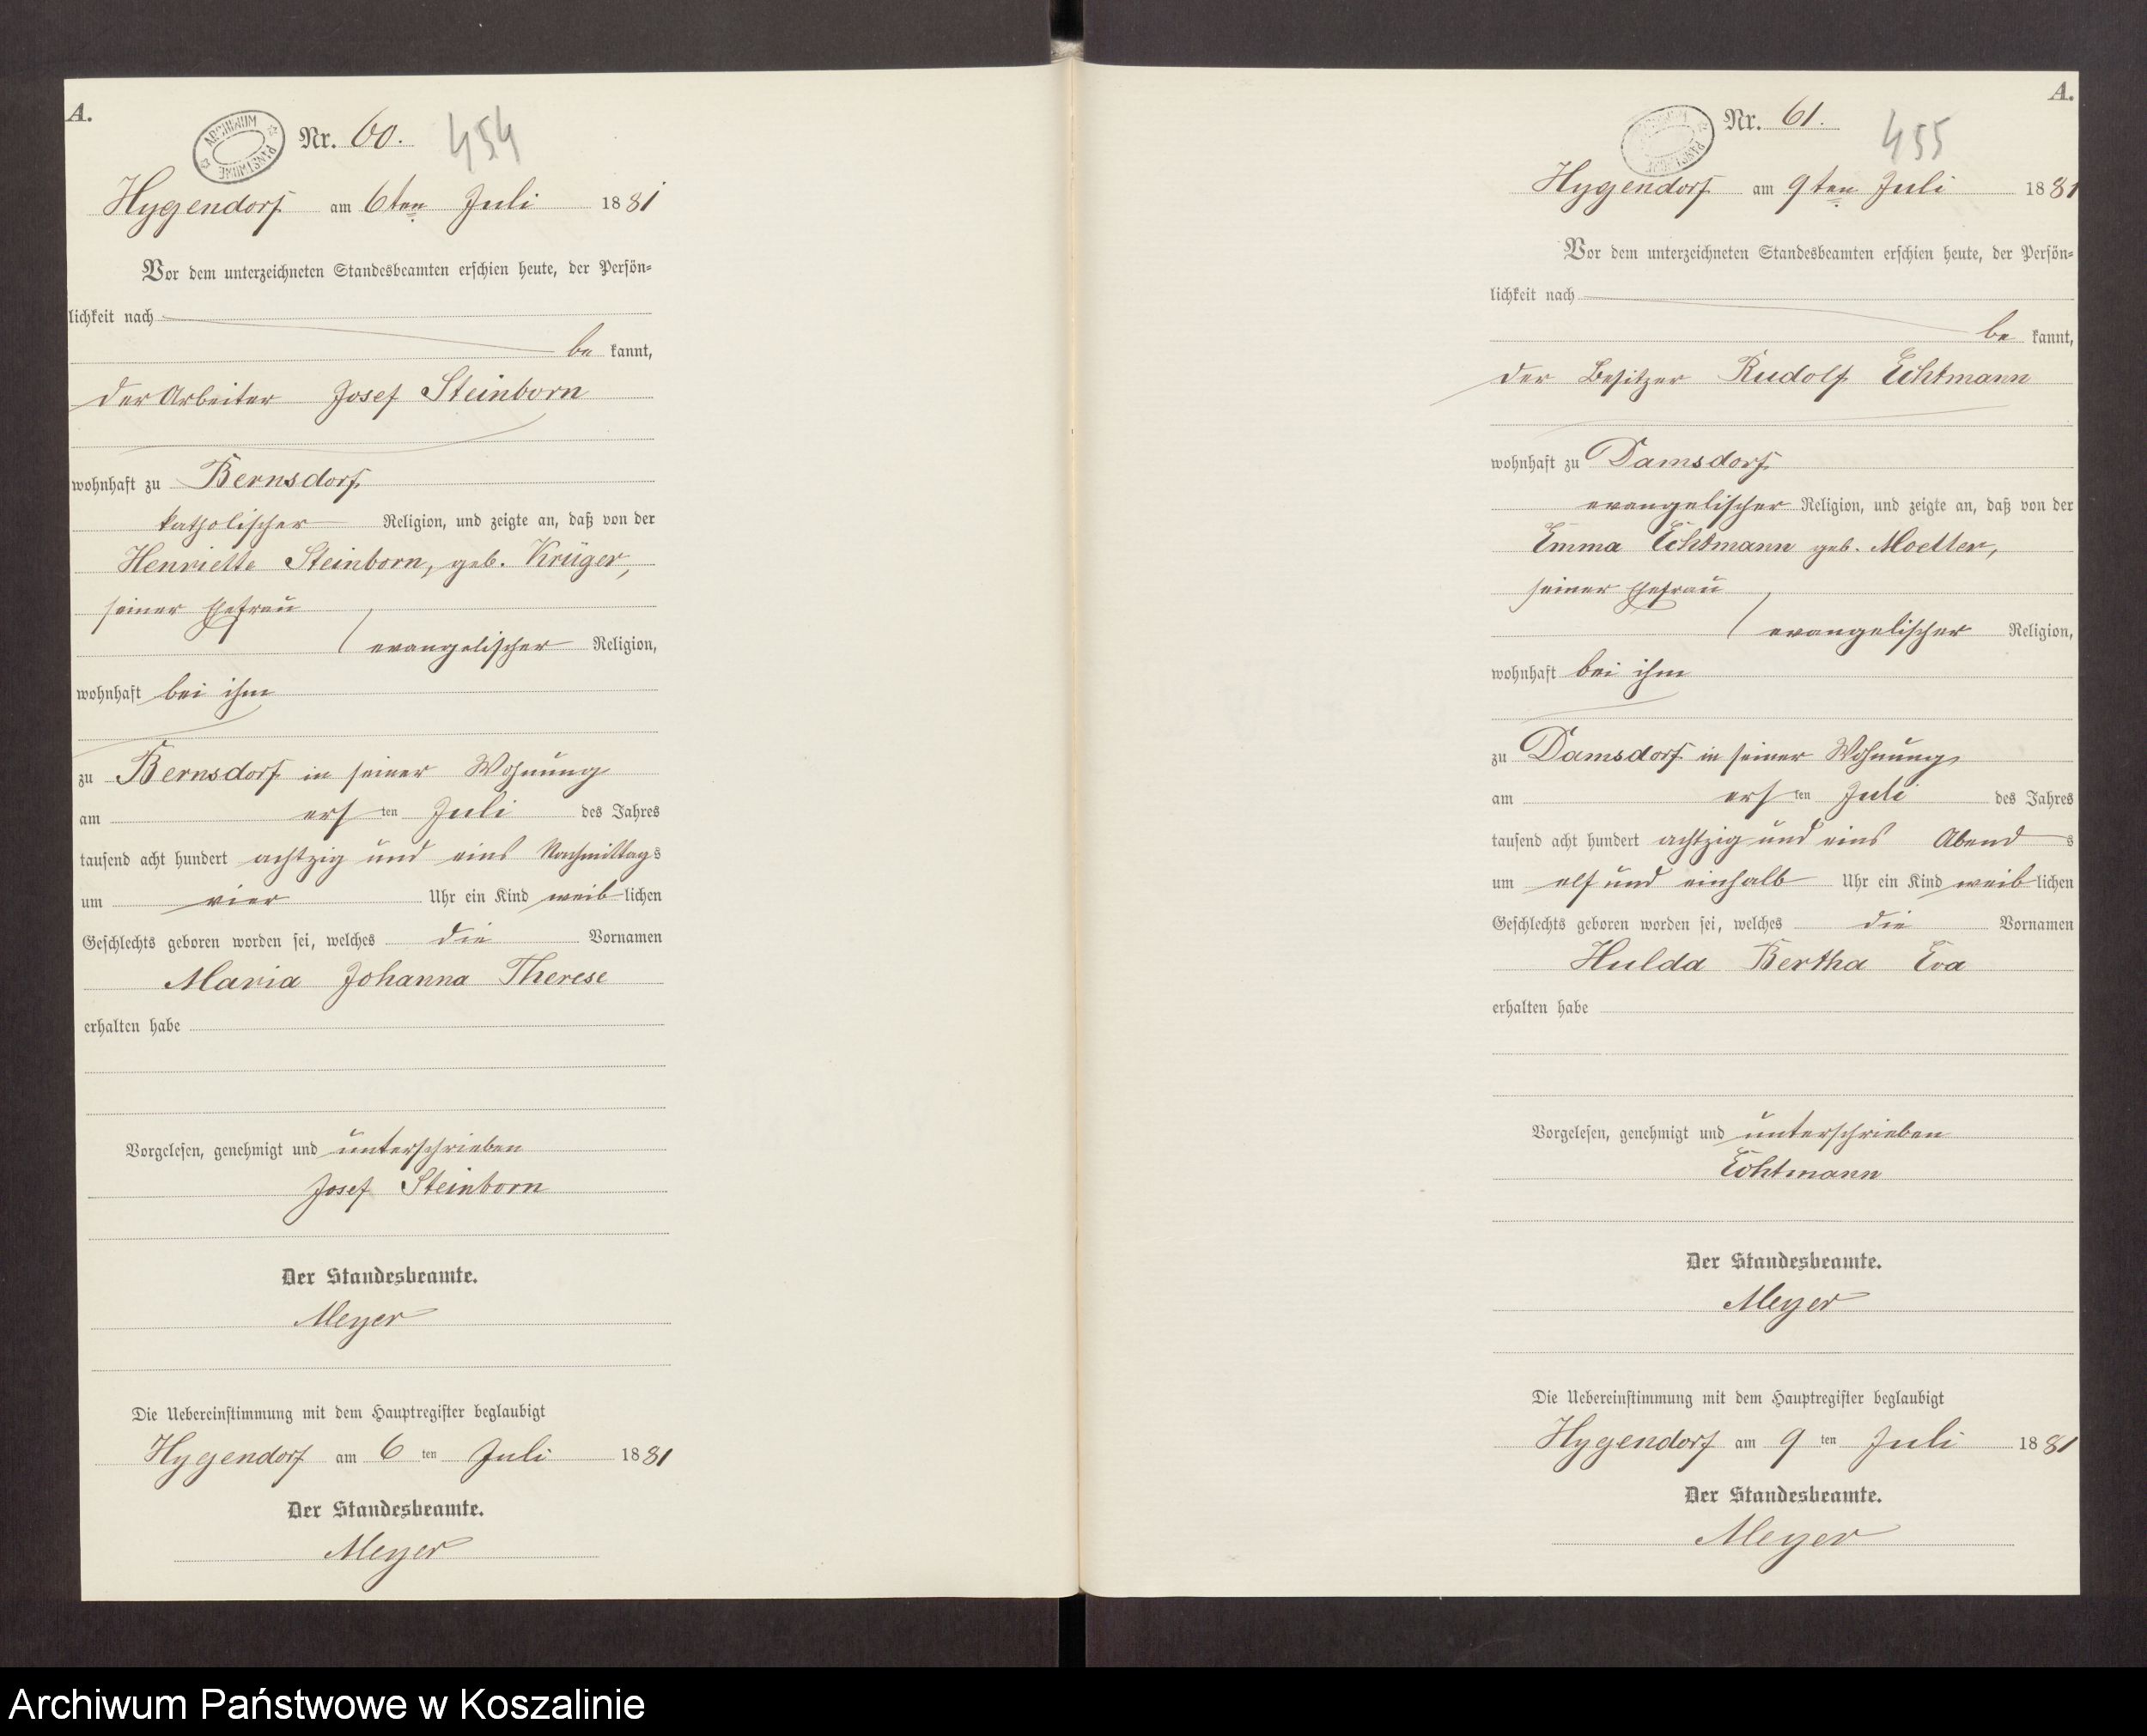 A.
ARCHIWUM PAŃSTWOWE
Nr. 60.
454
Hygendorf am 6ten Juli 1881
Vor dem unterzeichneten Standesbeamten erschien heute, der Persön-
lichkeit nach
be kannt,
der Arbeiter Josef Steinborn
wohnhaft zu Bernsdorf
katholischer Religion, und zeigte an, daß von der
Henriette Steinborn, geb. Krüger,
seiner Ehefrau
evangelischer Religion,
wohnhaft bei ihm
zu Bernsdorf in seiner Wohnung
am ers ten Juli des Jahres
tausend acht hundert achtzig und eins Nachmittags
um vier Uhr ein Kind weiblichen
Geschlechts geboren worden sei, welches die Vornamen
Maria Johanna Therese
erhalten habe
Vorgelesen, genehmigt und unterschrieben
Josef Steinborn
Der Standesbeamte.
Meyer
Die Uebereinstimmung mit dem Hauptregister beglaubigt
Hygendorf am 6 ten Juli 1881
Der Standesbeamte.
Meyer
A.
Nr. 61.
455
Hygendorf am 9ten Juli 1881
Vor dem unterzeichneten Standesbeamten erschien heute, der Persön-
lichkeit nach
be kannt,
der Besitzer Rudolf Echtmann
wohnhaft zu Damsdorf
evangelischer Religion, und zeigte an, daß von der
Emma Echtmann geb.
seiner Ehefrau
evangelischer Religion,
wohnhaft bei ihm
zu Damsdorf in seiner Wohnung
am ers ten Juli des Jahres
tausend acht hundert achtzig und eins Abend s
um elf und einhalb Uhr ein Kind weiblichen
Geschlechts geboren worden sei, welches die Vornamen
Hulda Bertha Eva
erhalten habe
Vorgelesen, genehmigt und unterschrieben
Echtmann
Der Standesbeamte.
Meyer
Die Uebereinstimmung mit dem Hauptregister beglaubigt
Hygendorf am 9 ten Juli 1881
Der Standesbeamte.
Meyer
Archiwum Państwowe w Koszalinie